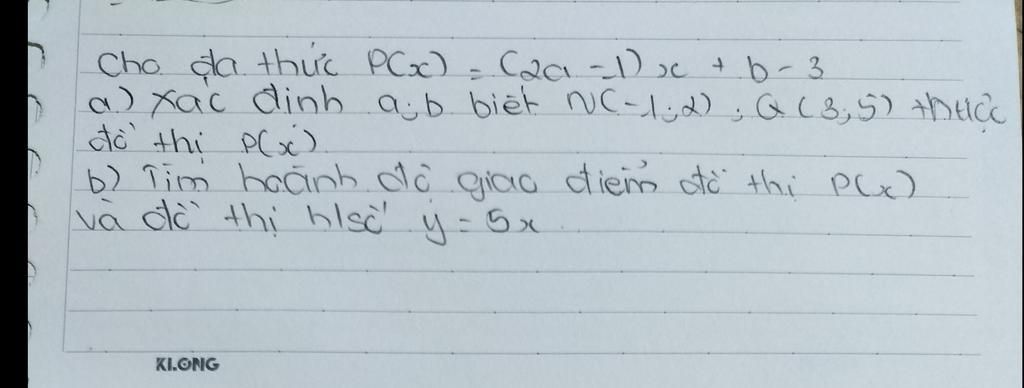 Cho đa thức P(x) = (2a - 1)x + b - 3
a) Xác định a; b biết N(-1; 2); Q(3; 5) thuộc
đồ thị P(x)
b) Tìm hoành độ giao điểm đồ thị P(x)
và đồ thị h/số y = 5x
KLONG